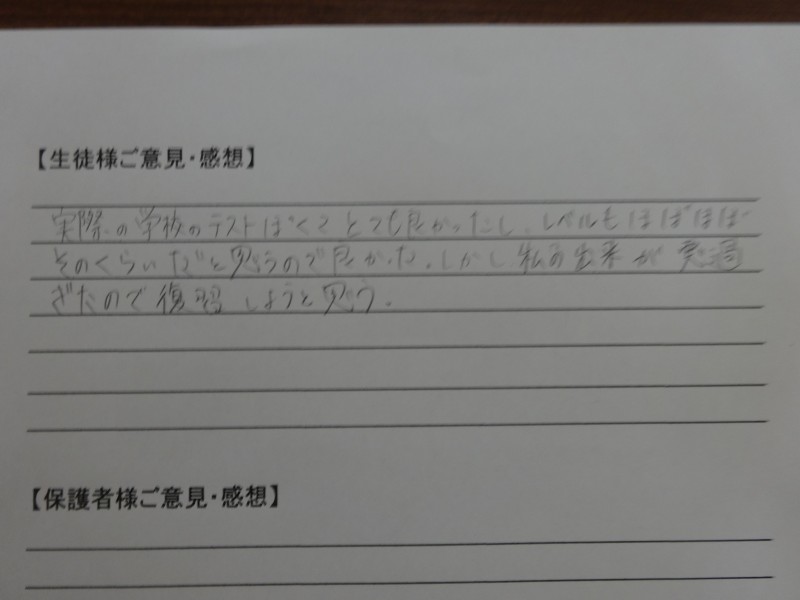 【生徒様ご意見・感想】
実際の学校のテストぽくてとても良かったし、レベルもほぼほぼ
そのくらいだと思うので良かった。しかし私の出来が悪過
ぎたので復習しようと思う。
【保護者様ご意見・感想】